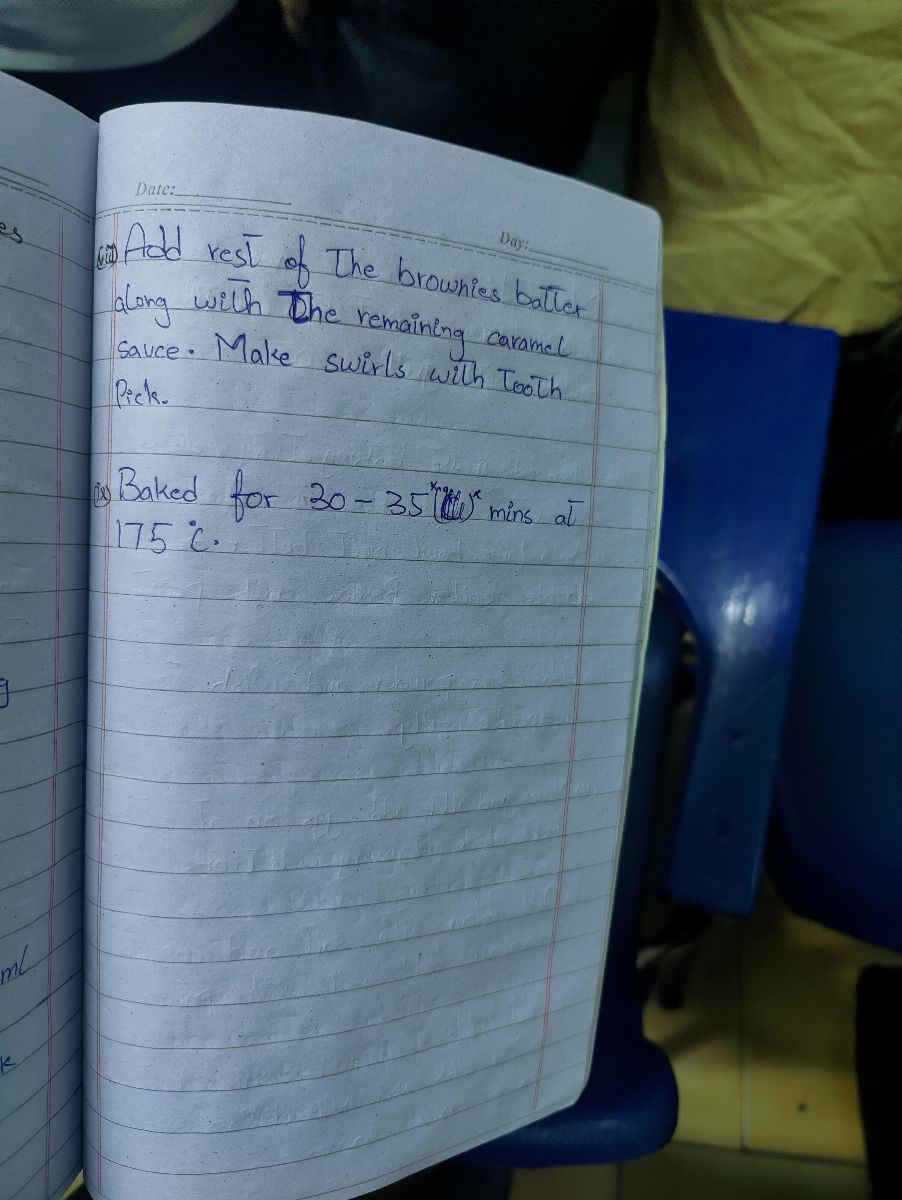 Date:
Day:
(viii) Add rest of The brownies batter
along with The remaining caramel
sauce. Make swirls with Tooth
Pick.
(ix) Baked for 30 - 35 mins at
175 °c.
es
g
ml
k